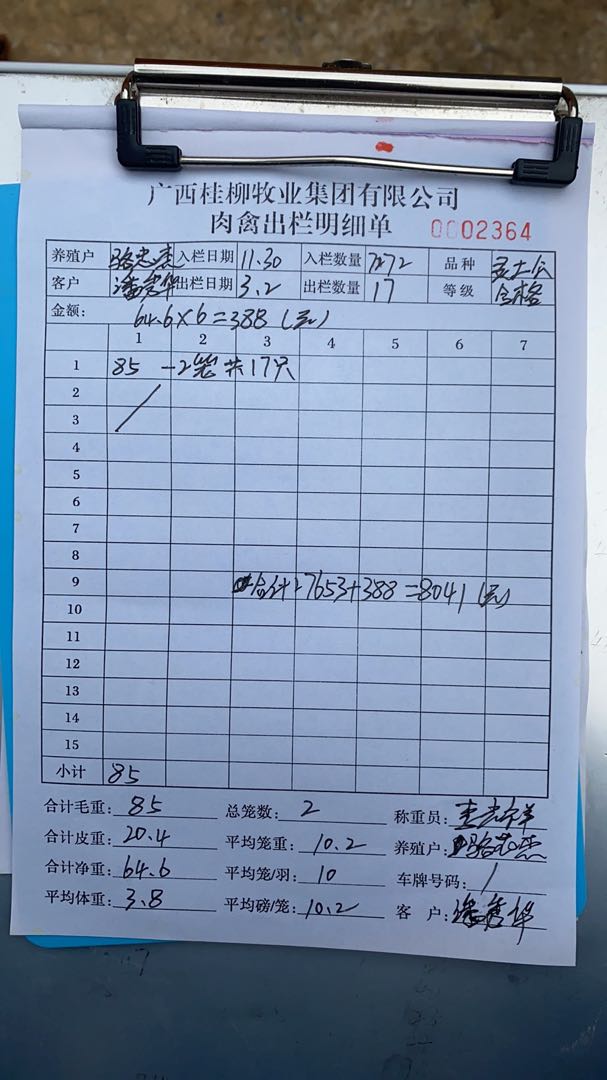 广西桂柳牧业集团有限公司
肉禽出栏明细单 0002364
养殖户 入栏日期 11.30 入栏数量 7272 品种
客户 潘秀华 出栏日期 3.2 出栏数量 17 等级 合格
金额: 64.6×6=388(元)
1 2 3 4 5 6 7
1 85 -2笼 共17只
2
3
4
5
6
7
8
9 合计:7653+388=8041(元)
10
11
12
13
14
15
小计 85
合计毛重: 85 总笼数: 2 称重员:
合计皮重: 20.4 平均笼重: 10.2 养殖户:
合计净重: 64.6 平均笼/羽: 10 车牌号码: /
平均体重: 3.8 平均磅/笼: 10.2 客 户: 潘秀华